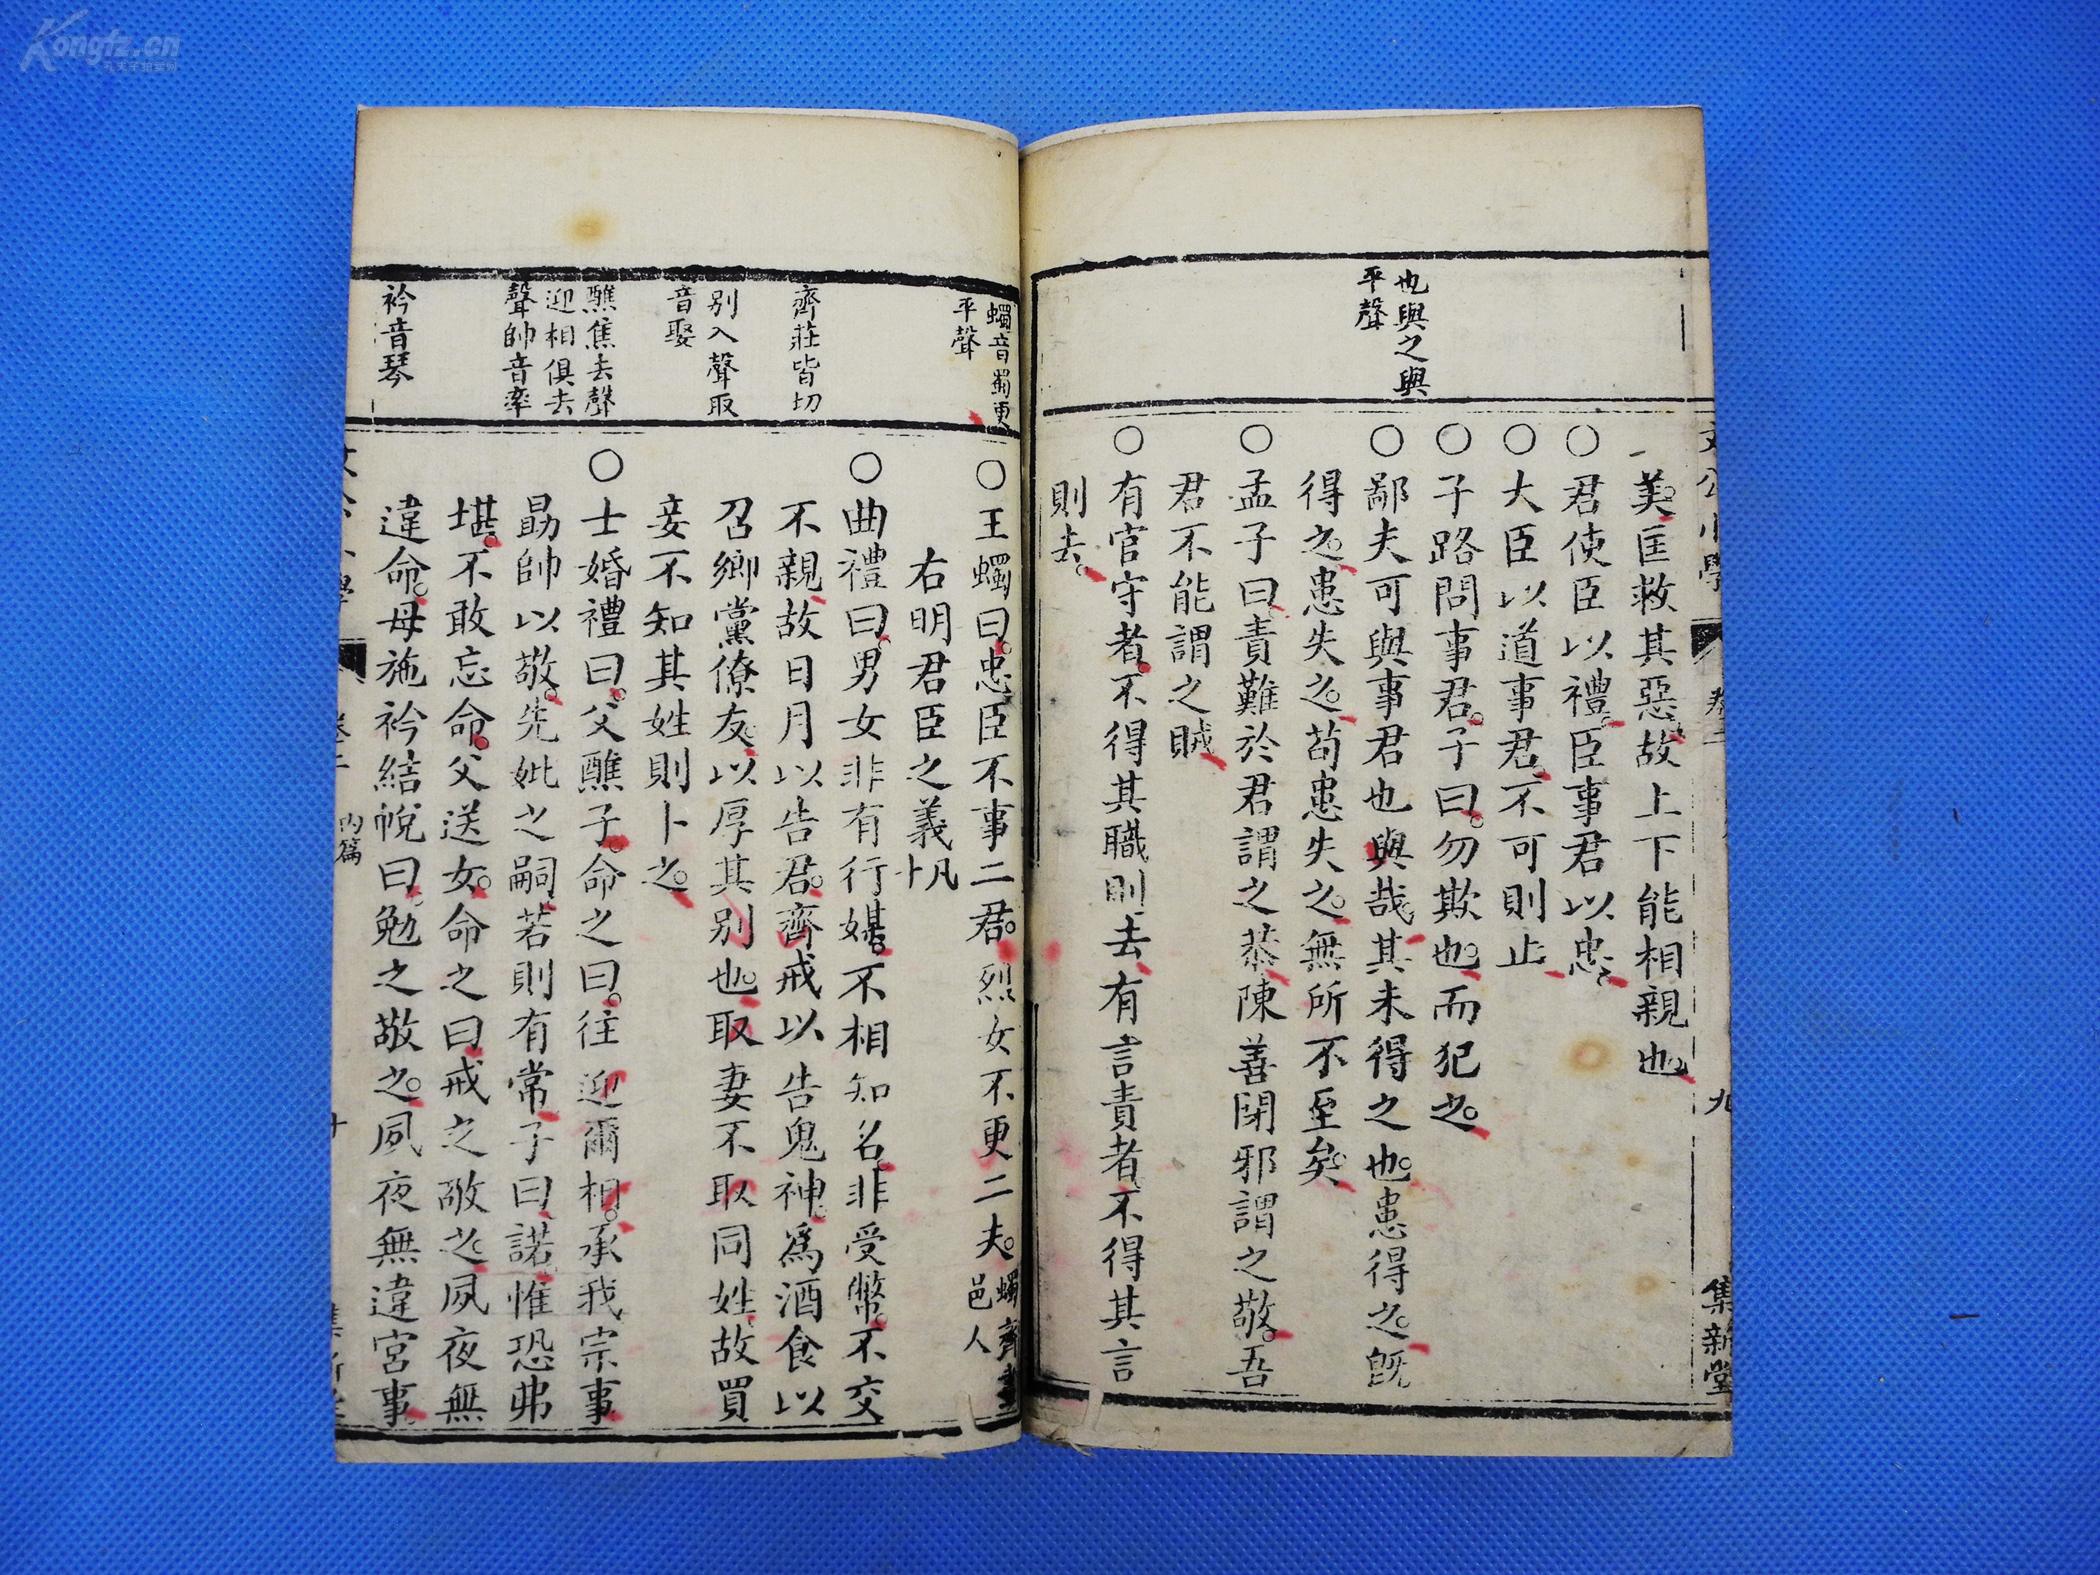 Kongfz.cn
孔夫子拍卖网
也與之與
平聲
美。匡救其惡。故上下能相親也。
○君使臣以禮。臣事君以忠。
○大臣以道事君。不可則止
○子路問事君。子曰。勿欺也。而犯之。
○鄙夫可與事君也與哉。其未得之也。患得之。旣
得之。患失之。苟患失之。無所不至矣。
○孟子曰。責難於君謂之恭。陳善閉邪謂之敬。吾
君不能謂之賊
○有官守者。不得其職則去。有言責者。不得其言
則去。
文公小學 卷二 九 集新堂
蠋音蜀更
平聲
齊莊皆切
別入聲取
音娶
醮焦去聲
迎相俱去
聲帥音率
衿音琴
○王蠋曰。忠臣不事二君。烈女不更二夫。蠋齊畫
邑人
右明君臣之義凡
十
○曲禮曰。男女非有行媒。不相知名。非受幣。不交
不親。故日月以告君。齊戒以告鬼神。爲酒食以
召鄉黨僚友。以厚其別也。取妻不取同姓。故買
妾不知其姓則卜之。
○士婚禮曰。父醮子。命之曰。往迎爾相。承我宗事。
勗帥以敬。先妣之嗣。若則有常。子曰。諾。惟恐弗
堪。不敢忘命。父送女。命之曰。戒之敬之。夙夜無
違命。母施衿結帨曰。勉之敬之。夙夜無違宮事。
卷二 內篇 十